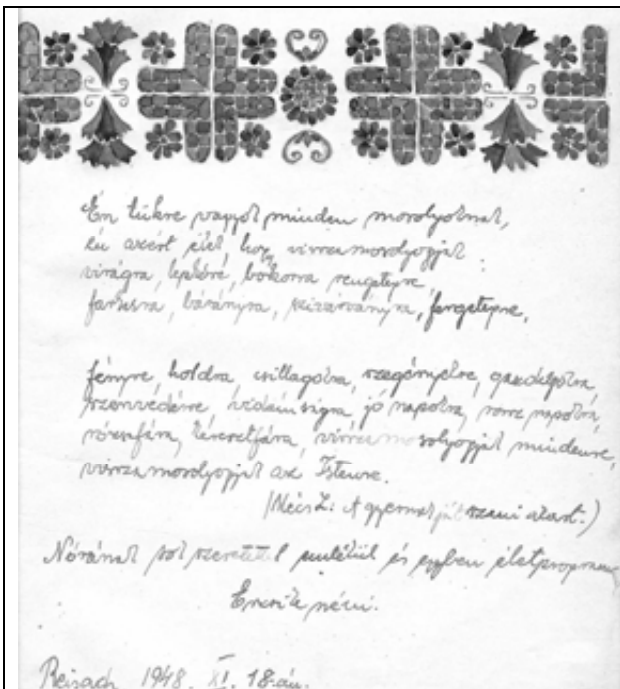 Én tükre vagyok minden mosolyoknak,
én azért élek, hogy visszamosolyogjak
virágra, lepkére, bokorra rengetegre,
farkasra, bárányra, szivárványra, fergetegre,
fényre, holdra, csillagokra, szegényekre, gazdagokra,
szenvedésre, vidámságra, jó napokra, rossz napokra,
rózsafára, keresztfára, visszamosolyogjak mindenre,
visszamosolyogjak az Istenre.
(Mécs L: A gyermek játszani akart.)
Nórának sok szeretettel emlékül és egyben életprogramul
Erzsike néni.
Reisach 1948. XI. 18-án.